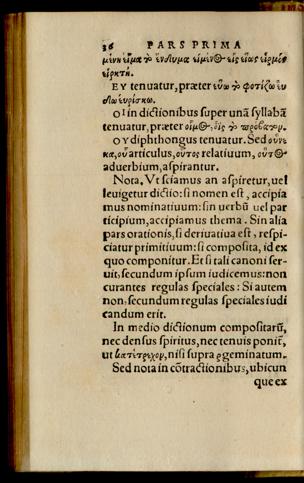 36 PARS PRIMA
μένη εἷμα τὸ ἔνδυμα εἱμένος εἷς εἵως εἱρμός
εἱρκτή.
ΕΥ tenuatur, præter εὕω τὸ φοτίζω εὑ
δω εὑρίσκω.
ΟΙ in dictionibus super unã syllabã
tenuatur, præter οἷος, ὄϊς τὸ πρόβατον.
ΟΥ diphthongus tenuatur. Sed οὕνε
κα, οὗ articulus, οὗτος relatiuum, οὕτως
aduerbium, aspirantur.
Nota, Vt sciamus an aspiretur, uel
leuigetur dictio: si nomen est, accipia
mus nominatiuum: sin uerbũ uel par
ticipium, accipiamus thema. Sin alia
pars orationis, si deriuatiua est, respi-
ciatur primitiuum: si composita, id ex
quo componitur. Et si tali canoni ser-
uit, secundum ipsum iudicemus: non
curantes regulas speciales: Si autem
non, secundum regulas speciales iudi
candum erit.
In medio dictionum compositarũ,
nec densus spiritus, nec tenuis poniẽ,
ut nisi supra ρ geminatum.
Sed nota in cõtractionibus, ubicun
que ex